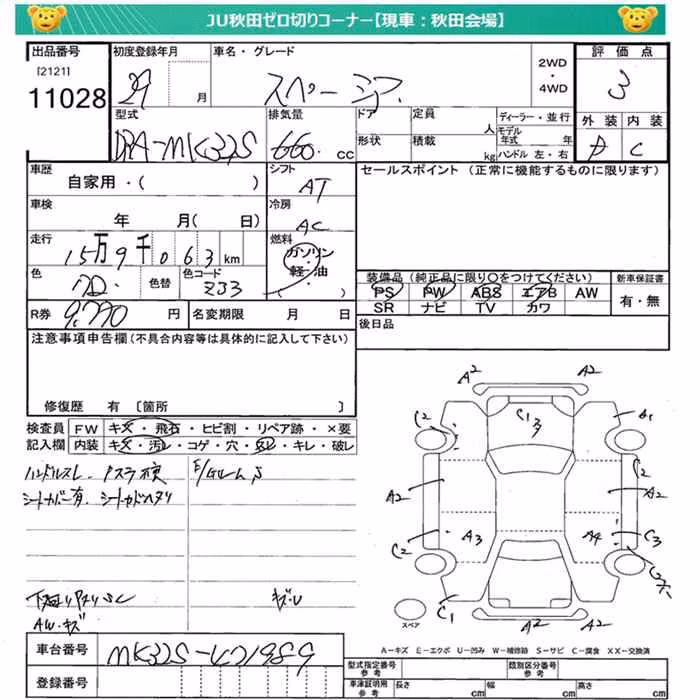 JU秋田ゼロ切りコーナー【現車：秋田会場】
出品番号 初度登録年月 車名・グレード 評価点
[2121] 11028 29 月 スペーシア 2WD・4WD 3
型式 排気量 ドア 定員 人 ディーラー・並行 外装 内装
DBA-MK32S 660 cc 形状 積載 kg モデル年式 年 ハンドル 左・右 C
車歴 シフト セールスポイント（正常に機能するものに限ります）
自家用・( ) AT
車検 冷房
年 月( 日) AC
走行 燃料
15万9千063km ガソリン・軽・油
色 色替 色コード 装備品（純正品に限り○をつけてください） 新車保証書
ZJ3 PS PW ABS エアB AW 有・無
SR ナビ TV カワ
R券 9,770 円 名変期限 月 日 後日品
注意事項申告欄（不具合内容等は具体的に記入して下さい）
修復歴 有 〔箇所 〕
検査員 FW キズ・飛石・ヒビ割・リペア跡・×要
記入欄 内装 キズ・汚レ・コゲ・穴・スレ・キレ・破レ
ハンドルスレ
シートカバー有
下廻りサビ
AW キズ
A2 A2
C2 C1 3 A1
C2
A2 A2
C2 A3 A4 C3
C1 A2 A2
スペア
A－キズ E－エクボ U－凹み W－補修跡 S－サビ C－腐食 XX－交換済
車台番号 MK32S-471989
登録番号
型式指定番号 参考 類別区分番号 参考
車庫証明用 参考 長さ cm 幅 cm 高さ cm